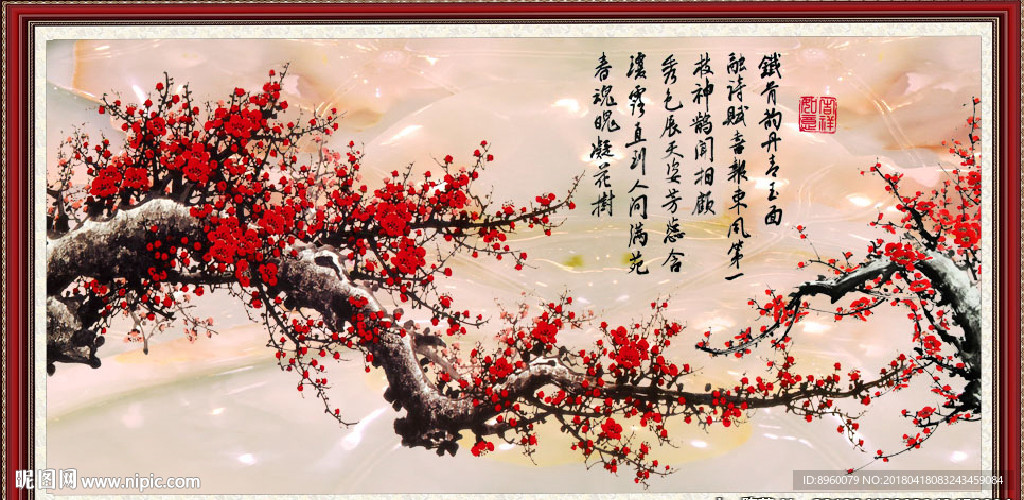 鐵骨韵丹青玉面
融诗赋喜報東風第一
枝神鹊闻相顧
秀色辰天姿芳蕊含
濃露直到人间满苑
春魂晚凝花樹
吉祥
如意
昵图网 www.nipic.com
ID:8960079 NO:20180418083243459084